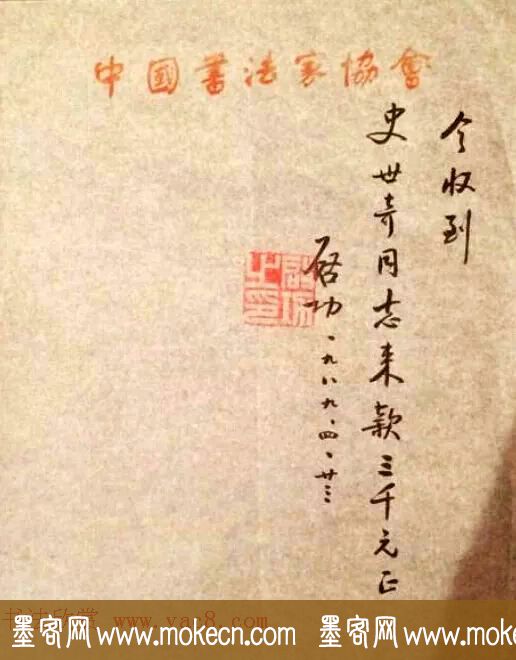 中國書法家協會
今收到
史世奇同志来款三千元正
启功
一九八九、四、廿三
书法欣赏 www.yac8.com
墨客网 www.mokecn.com 墨客网 www.mokecn.com